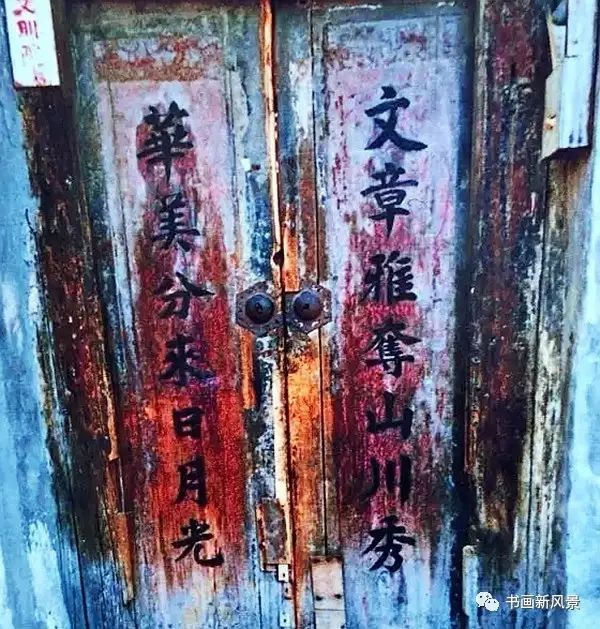 文章雅奪山川秀
華美分來日月光
书画新风景